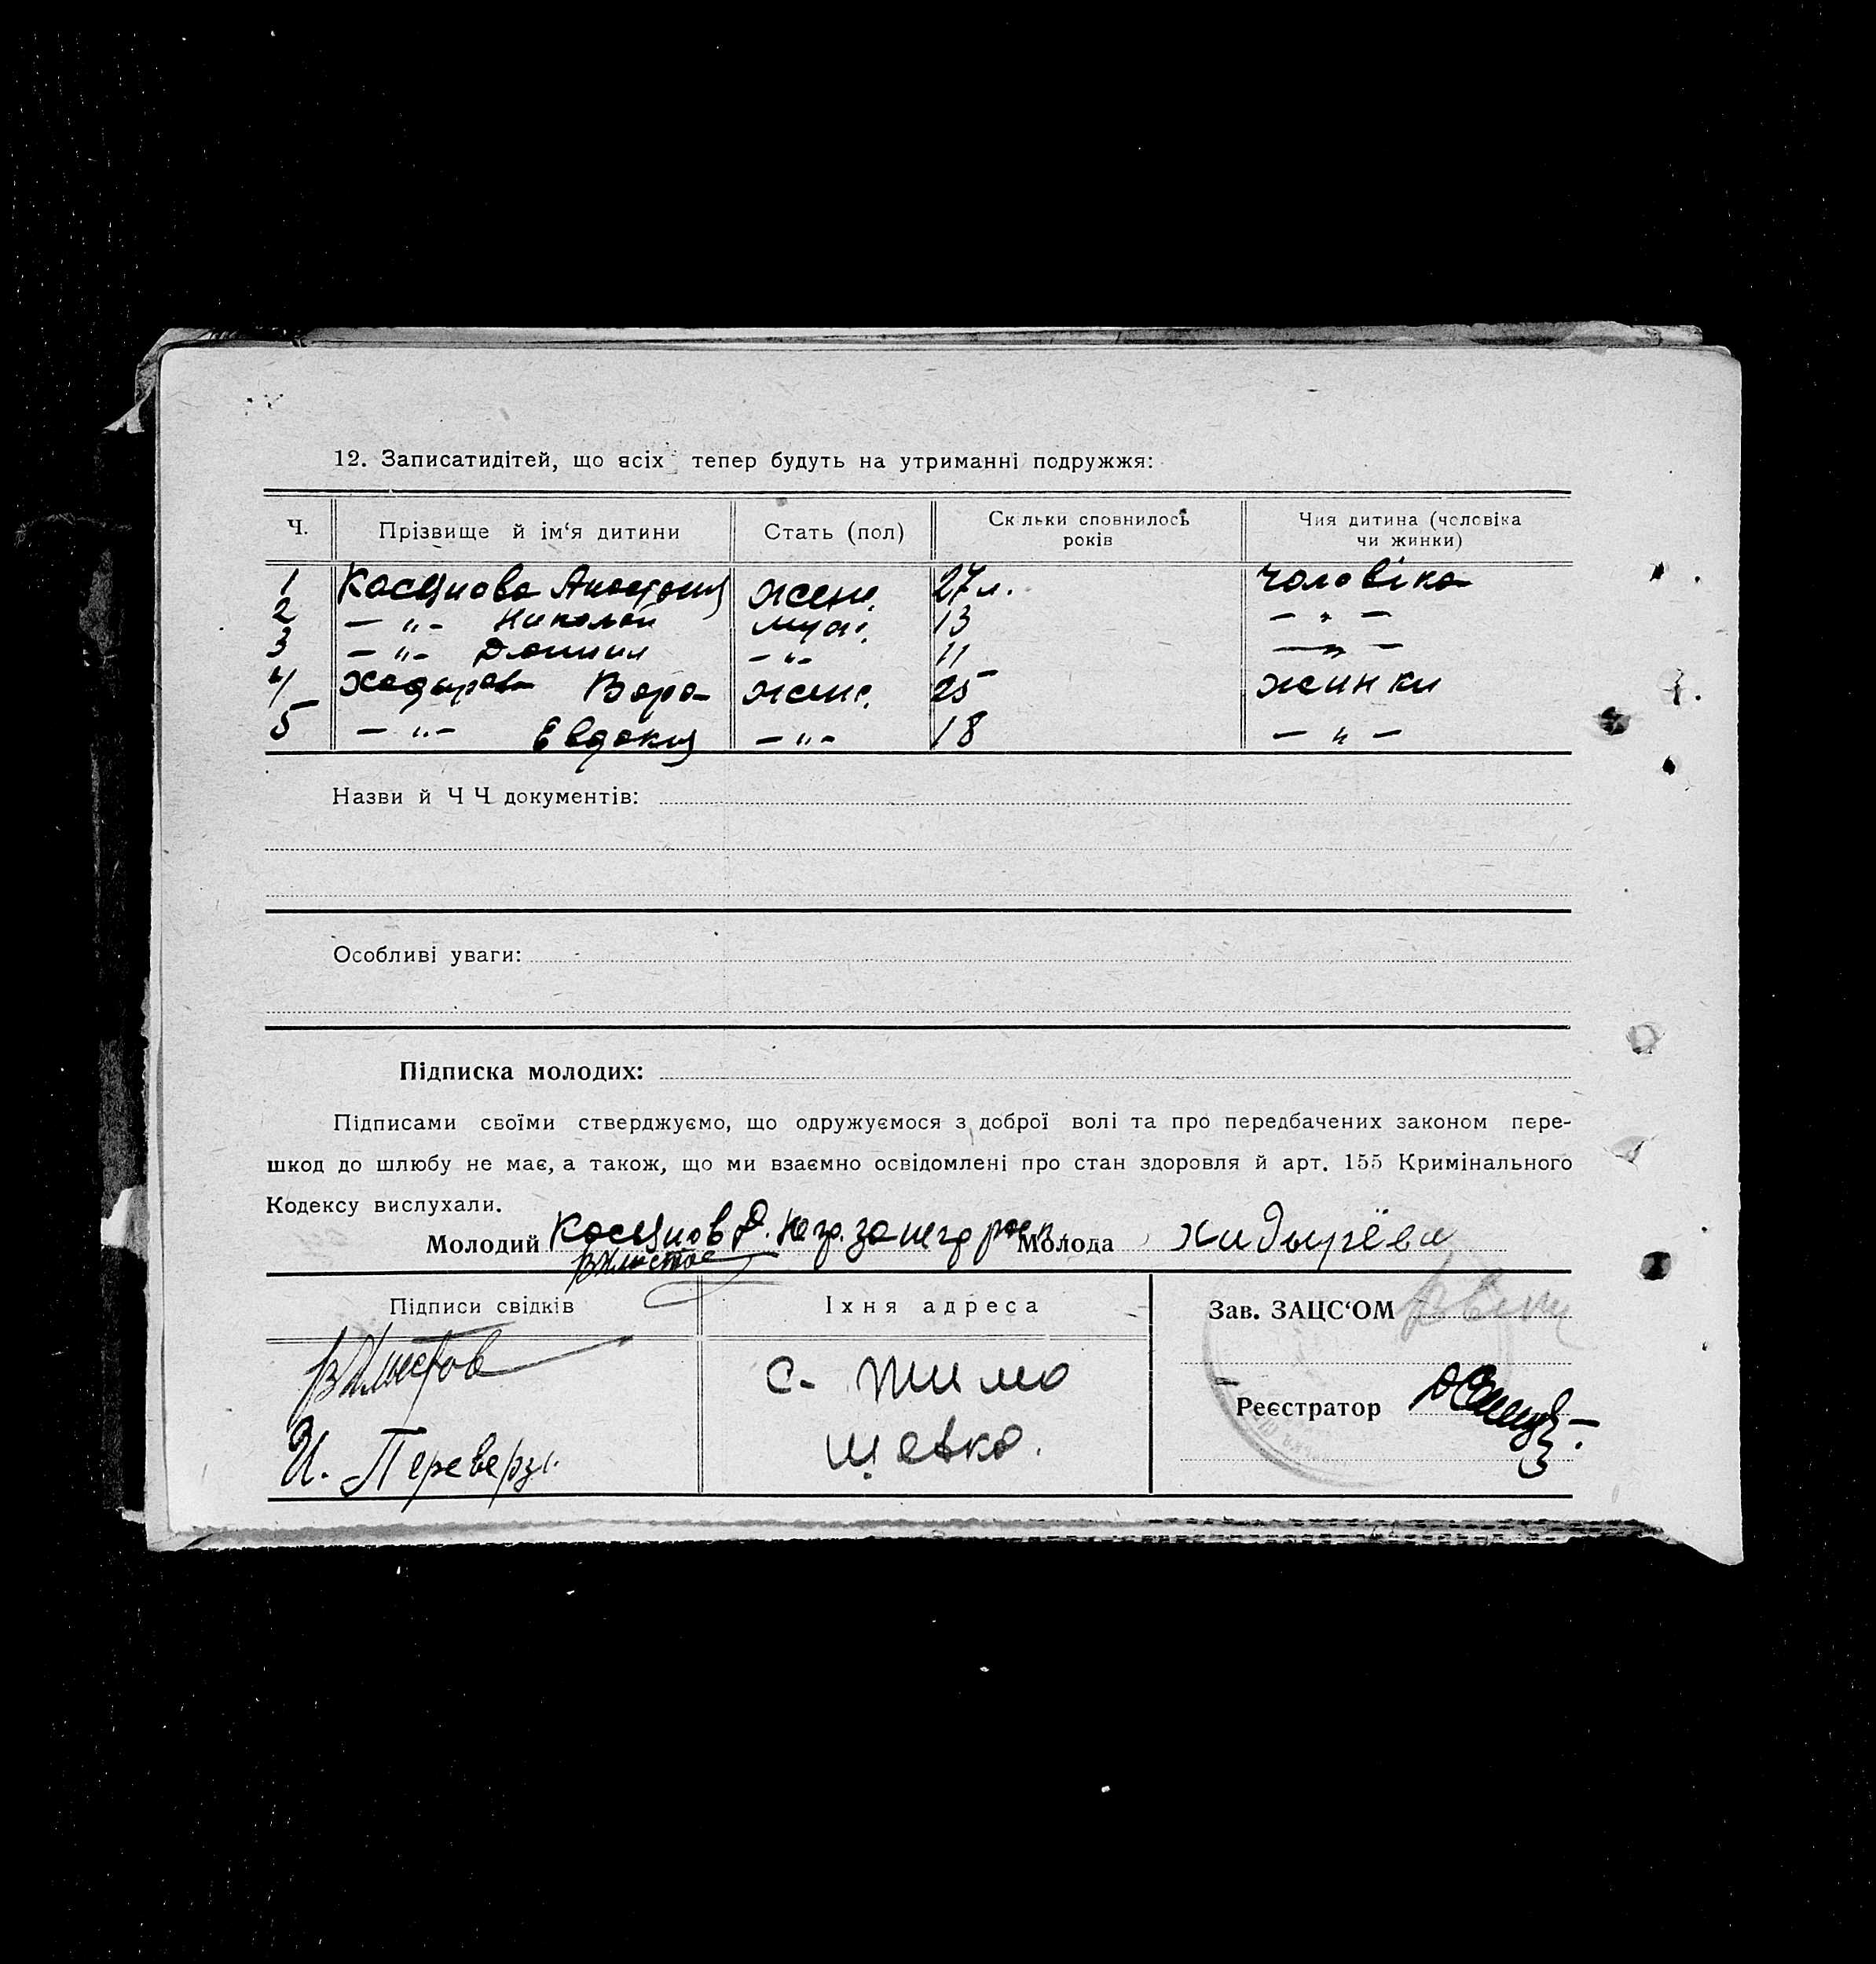 12. Записатидітей, що всіх тепер будуть на утриманні подружжя:
Ч. Прізвище й ім‘я дитини Стать (пол) Скільки сповнилось років Чия дитина (чоловіка чи жинки)
1 Косянова Анастасия женс. 27 л. чоловіка
2 — „ — Николай муж. 13 — „ —
3 — „ — Даниил — „ — 11 — „ —
4 Хадырева Вера женс. 25 жинки
5 — „ — Евдокия — „ — 18 — „ —
Назви й Ч Ч документів:
Особливі уваги:
Підписка молодих:
Підписами своїми стверджуємо, що одружуємося з доброї волі та про передбачених законом пере-
шкод до шлюбу не має, а також, що ми взаємно освідомлені про стан здоровля й арт. 155 Кримінального
Кодексу вислухали.
Молодий Косянов Д. Молода хидырёва
Підписи свідків Їхня адреса Зав. ЗАЦС‘ОМ
с. Тимо
шевка.
И. Переверз.
Реєстратор